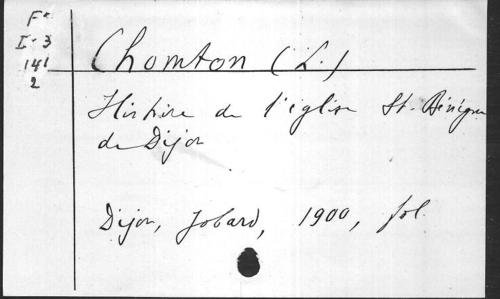 F*
I-3
141
2
Chomton (L.)
Histoire de l'église St. Bénigne
de Dijon
Dijon, Jobard, 1900, fol.